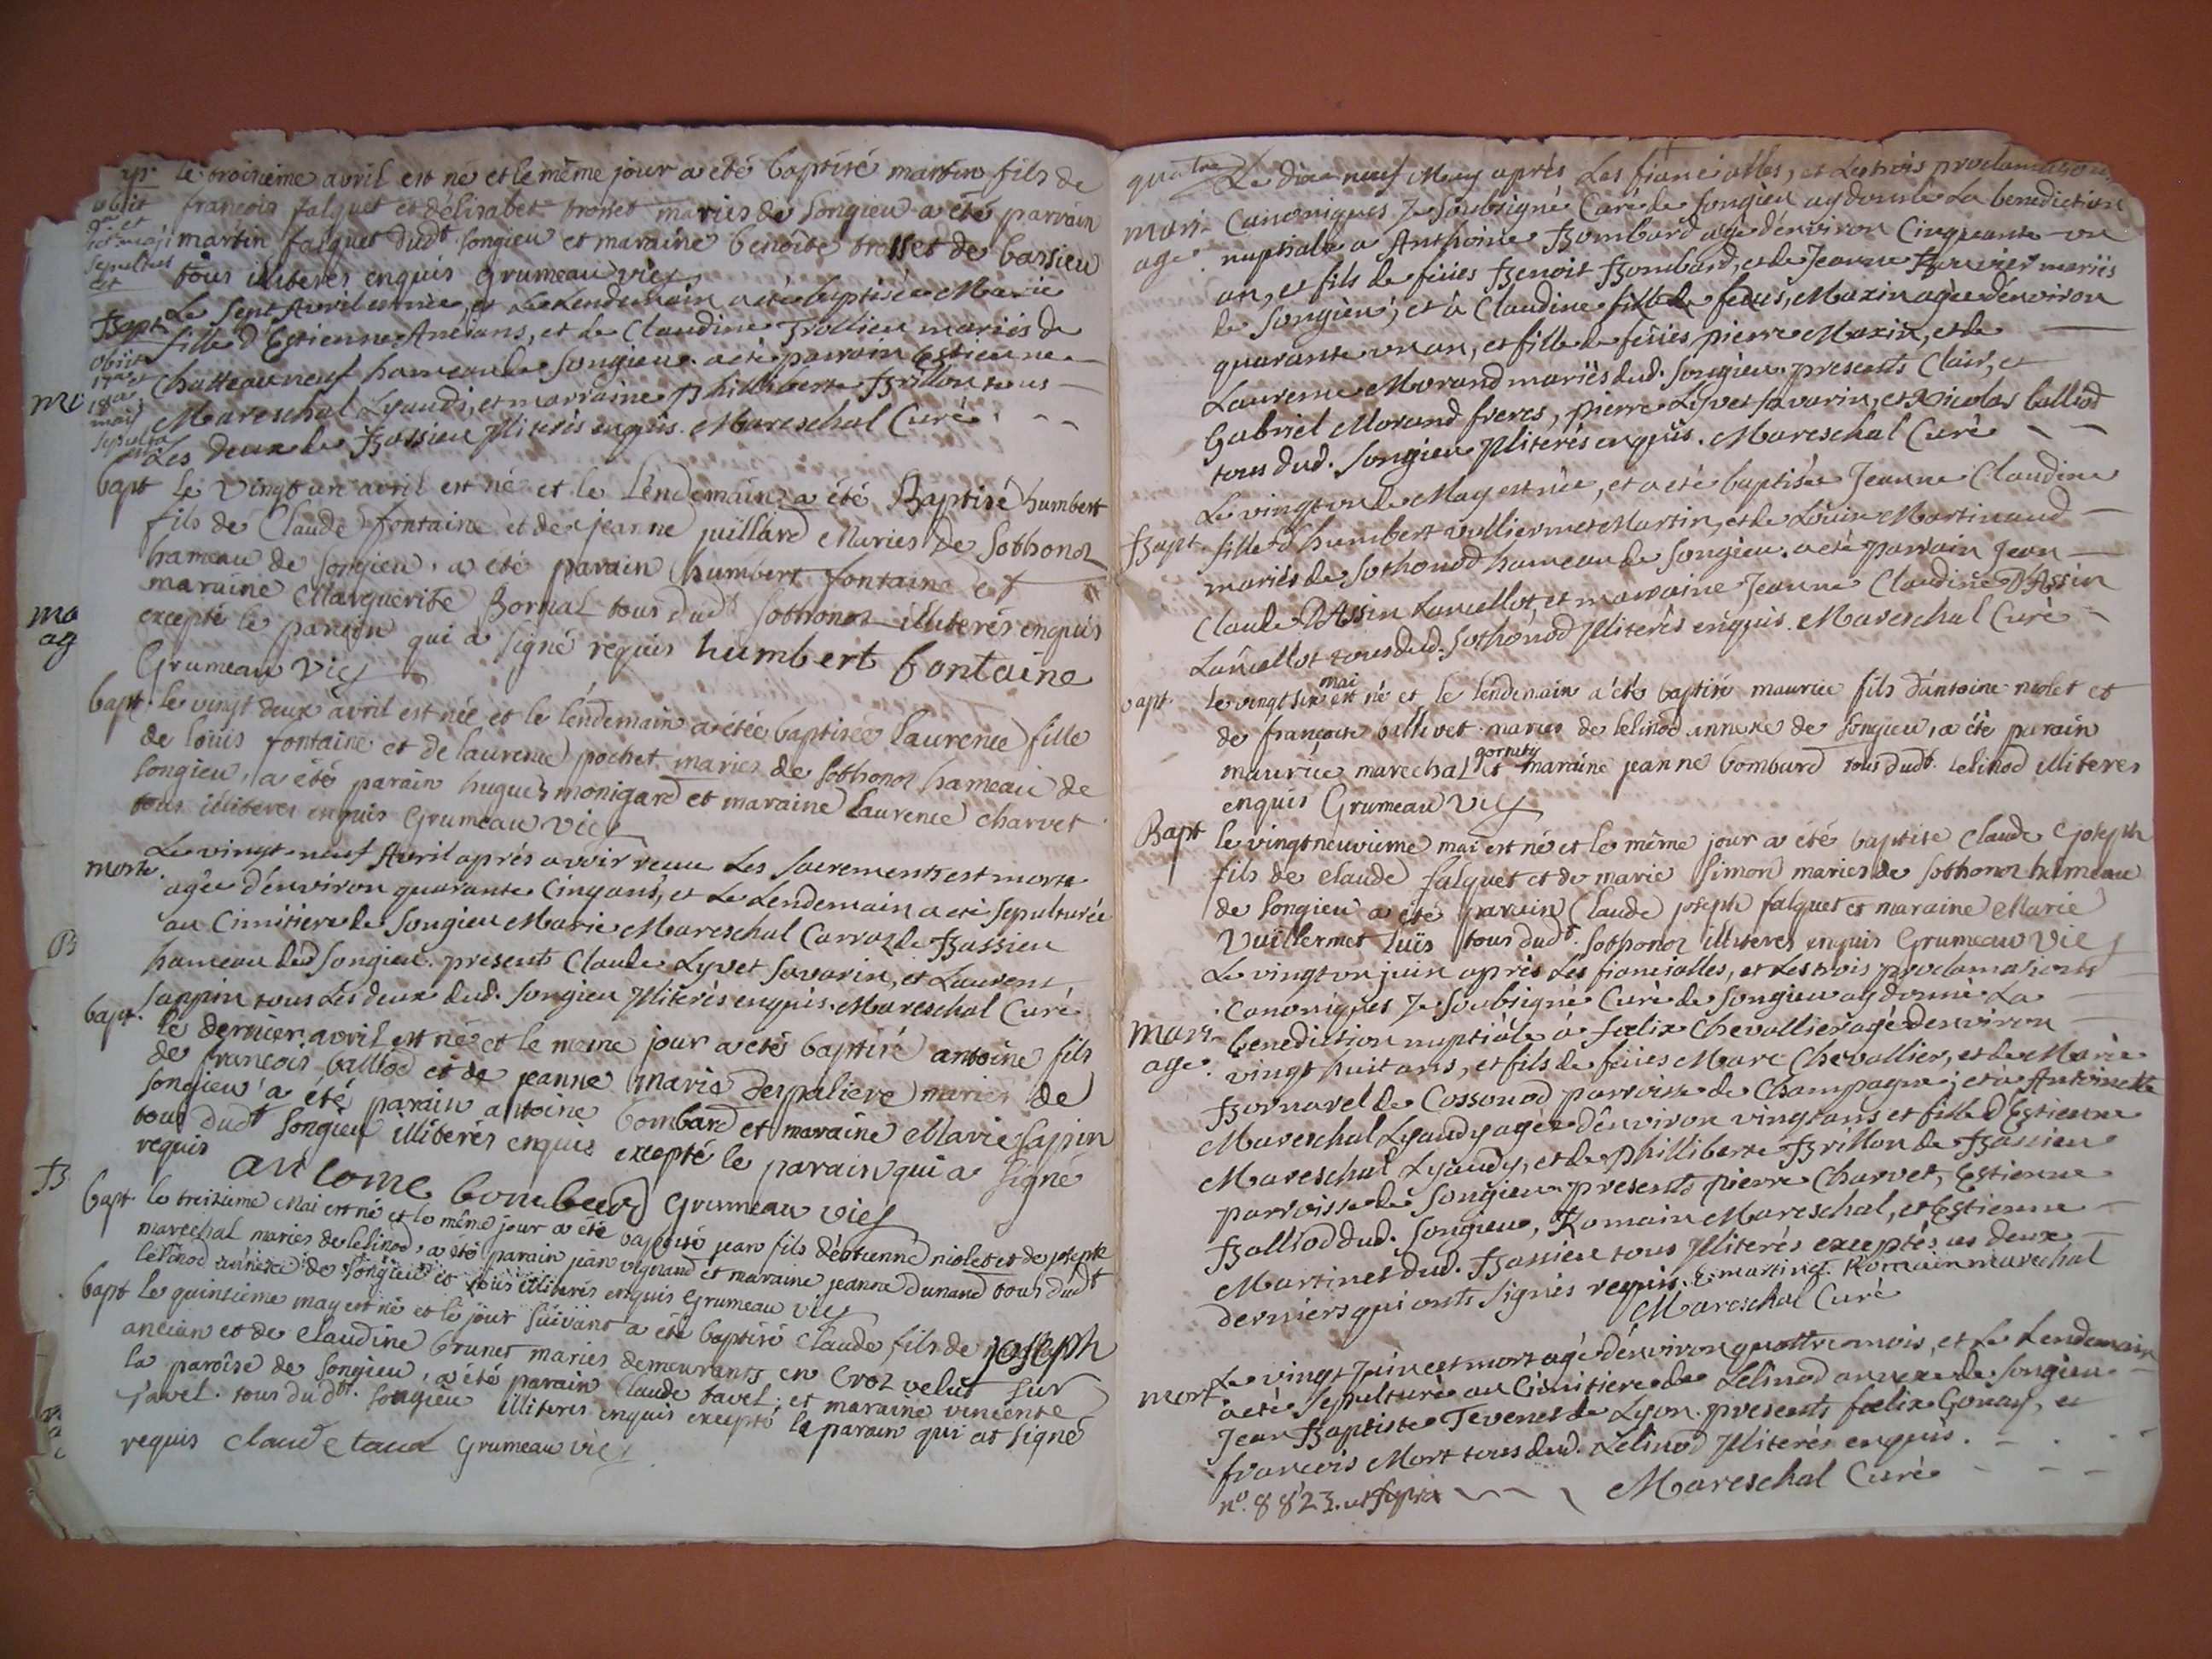 le troisieme avril est né et le même jour a été baptisé martin fils de
francois falquet et délisabet trosset mariés de songieu a été parrain
martin falquet dudt songieu et maraine benoîte trosset de bassieu
tous illiteres enquis Grumeau vic
Bapt Le sept Avril est née, et Le Lendemain a été baptisée Marie
fille d'Estienne Ancians, et de Claudine Trollieu mariés de
Chatteauneuf hameau de Songieu. a été parrain Estienne
Mareschal Lyaudi, et marraine Philliberte Brillon tous
Les deux de Bassieu Illiterés enquis. Mareschal Curé
bapt Le vingt un avril est né et le lendemain a été Baptisé humbert
fils de Claude fontaine et de jeanne juillard Maries de Sothonoz
hameau de songieu, a été parain humbert fontaine et
maraine Marguerite Bornaz tous dudt Sothonoz illiterés enquis
excepté le parain qui a signé requis humbert fontaine
Grumeau vic
bapt. le vingt deux avril est née et le lendemain a étée baptisée laurence fille
de louis fontaine et de laurence pochet maries de sothonoz hameau de
songieu, a été parain hugues monigard et maraine laurence charvet
tous illiteres enquis Grumeau vic
Le vingt neuf Avril aprés avoir reçu Les Sacrements est morte
morte. agée d'environ quarante Cinq ans, et Le Lendemain a été sepulturée
au Cimitiere de Songieu Marie Mareschal Carraz de Bassieu
hameau dud Songieu. presents Claude Lyvet Savarin, et Laurent
Sappin tous Les deux dud. Songieu Illiterés enquis. Mareschal Curé
bapt. le dernier avril est né et le meme jour a étés baptisé antoine fils
de francois balliod et de jeanne marie despaliere mariés de
songieu a été parain antoine bombard et maraine Marie sappin
tous dudt Songieu illiterés enquis excepté le parain qui a signé
requis antoine bombard Grumeau vic
bapt. le treizieme Mai est né et le même jour a été baptisé jean fils déstienne niolet et de josepte
marechal maries de lelinod, a été parain jean vegnand et maraine jeanne dunand tous dudt
lelinod annexe de songieu et tous illiterés enquis Grumeau vic
bapt le quinsieme may est né et le jour suivant a été baptisé Claude fils de joseph
ancian et de claudine brunet maries demeurants en Croz velut sur
la paroise de songieu, a été parain Claude tavel; et maraine vincente
Tavel. tous dudt. songieu illiteres enquis excepté le parain qui at signé
requis claude tavel Grumeau vic
quatre
Le dix neuf May aprés Les fianciailles, et Les trois proclamations
mari- Canoniques Je Soubsigné Curé de Songieu ay donné La benediction
age. nuptiale a Anthoine Bombard agé d'environ Cinquante un
an, et fils de feües Benoit Bombard, et de Jeanne Bouvier mariés
de Songieu; et à Claudine fille de feües, Maxin agée d'environ
quarante un an, et fille de feües, pierre Maxin, et de
Laurence Morand mariés dud. Songieu. presents Clair, et
Gabriel Morand freres, pierre Lyvet Savarin, et Nicolas balliod
tous dud. Songieu Illiterés enquis. Mareschal Curé
Le vingt un de May est née, et a été baptisée Jeanne Claudine
Bapt. fille d'humbert vulliermet Martin, et de Louise Martinaud
mariés de Sothonod hameau de Songieu. a été parrain Jean
Claude D'Assin Lancellot, et marraine Jeanne Claudine D'Assin
Lancellot tous dud. Sothonod Illiterés enquis. Mareschal Curé
mai
bapt. le vingt six est né et le lendemain a été baptisé maurice fils dántoine niolet et
de françoise billivet maries de lelinod annexe de songieu, a été parain
gornety
maurice marechal et maraine jeanne bombard tous dudt. lelinod illiteres
enquis Grumeau vic
Bapt le vingt neuvieme mai est né et le même jour a été baptise Claude Joseph
fils de claude falquet et de marie simon maries de sothonoz hameau
de songieu a été parain Claude joseph falquet et maraine Marie
Vuillermet luis tous dudt. Sothonoz illiteres enquis Grumeau vic
Le vingt un juin aprés Les fiancialles, et Les trois proclamations
Canoniques Je Soubsigné Curé de Songieu ay donné La
mari- benediction nuptiale à foelix Chevallier agé d'environ
age. vingt huit ans, et fils de feües Marc Chevallier, et de Marie
Bornavel de Cossonod parroisse de Champagne; et à Antoinette
Mareschal Lyaudy agée d'environ vingt ans et fille d'Estienne
Mareschal Lyaudy, et de Philliberte Brillon de Bassieu
parroisse de Songieu. presents pierre Charvet, Estienne
Balliod dud. Songieu, Romain Mareschal, et Estienne
Martinet dud. Bassieu tous Illiterés exceptés ces deux
derniers qui onts signés requis. E. martinet. Romain marechal
Mareschal Curé
Le vingt Juin est mort agé d'environ quattre mois, et Le Lendemain
mort a été sepulturé au Cimitiere de Lelinod annexe de Songieu
Jean Baptiste Tevenet de Lyon. presents foelix Gonay, et
francois Mort tous dud. Lelinod Illiterés enquis.
Mareschal Curé